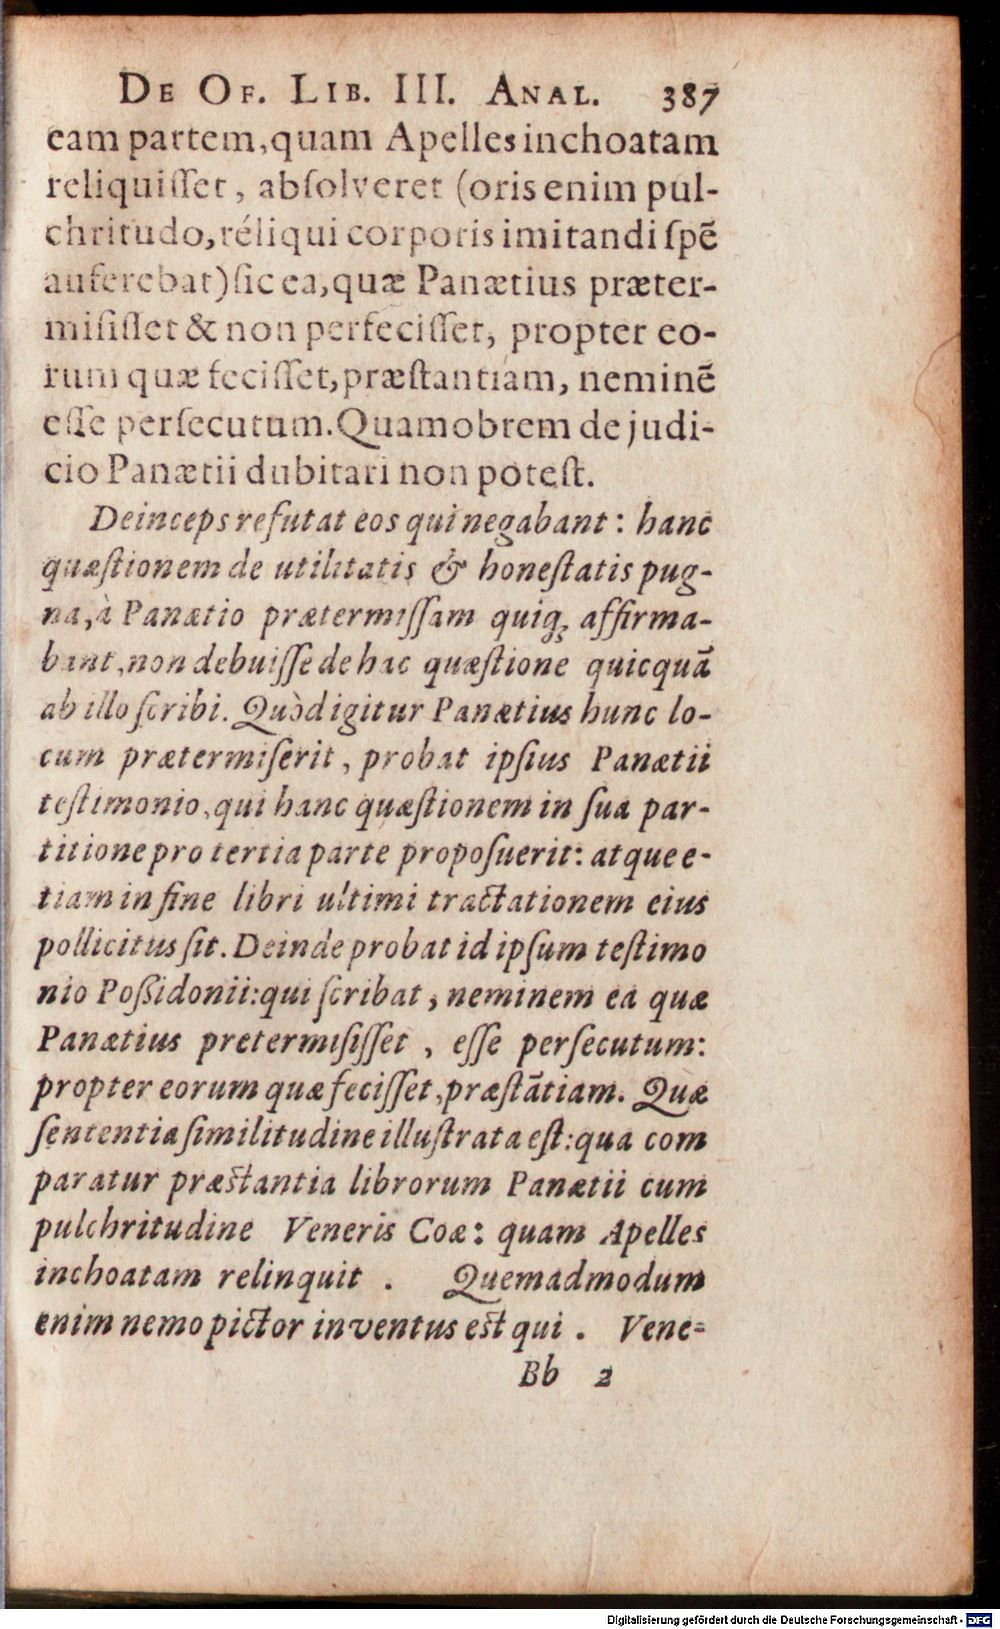 De Of. Lib. III. Anal. 387
eam partem, quam Apelles inchoatam
reliquiſſet, abſolveret (oris enim pul-
chritudo, réliqui corporis imitandi ſpē
auferebat) ſic ea, quæ Panætius præter-
miſiſſet & non perfeciſſet, propter eo-
rum quæ feciſſet, præſtantiam, neminē
eſſe perſecutum. Quamobrem de judi-
cio Panætii dubitari non poteſt.
Deinceps refutat eos qui negabant: hanc
quæſtionem de utilitatis & honeſtatis pug-
na, à Panætio prætermiſſam quiq; affirma-
bant, non debuiſſe de hac quæſtione quicquā
ab illo ſcribi. Quòd igitur Panætius hunc lo-
cum prætermiſerit, probat ipſius Panætii
teſtimonio, qui hanc quæſtionem in ſua par-
titione pro tertia parte propoſuerit: atque e-
tiam in fine libri ultimi tractationem eius
pollicitus ſit. Deinde probat id ipſum teſtimo
nio Poßidonii: qui ſcribat, neminem ea quæ
Panætius pretermiſiſſet, eſſe perſecutum:
propter eorum quæ feciſſet, præſtātiam. Quæ
ſententia ſimilitudine illuſtrata eſt: qua com
paratur præstantia librorum Panætii cum
pulchritudine Veneris Coæ: quam Apelles
inchoatam relinquit. Quemadmodum
enim nemo pictor inventus est qui. Vene-
Bb 2
Digitalisierung gefördert durch die Deutsche Forschungsgemeinschaft - DFG